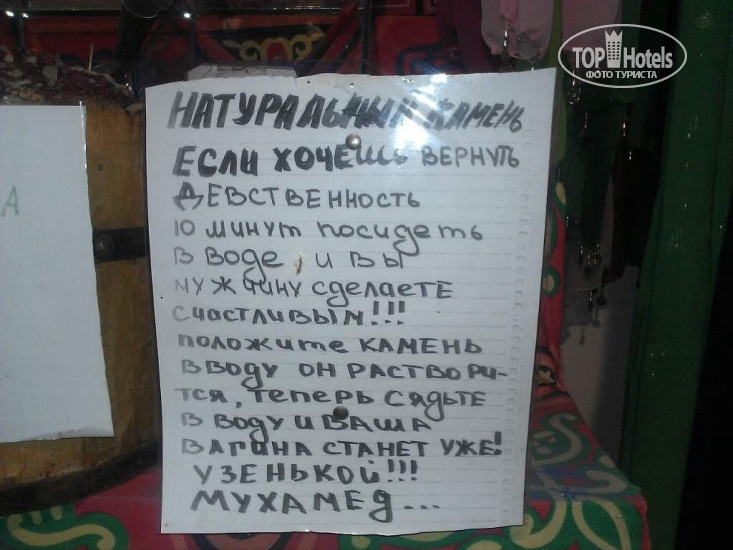 TOP Hotels
ФОТО ТУРИСТА
А
НАТУРАЛЬНЫЙ КАМЕНЬ
ЕСЛИ ХОЧЕШЬ ВЕРНУТЬ
ДЕВСТВЕННОСТЬ
10 МИНУТ ПОСИДЕТЬ
В ВОДЕ, И ВЫ
МУЖЧИНУ СДЕЛАЕТЕ
СЧАСТЛИВЫМ!!!
ПОЛОЖИТЕ КАМЕНЬ
В ВОДУ ОН РАСТВОРИ-
ТСЯ, ТЕПЕРЬ СЯДЬТЕ
В ВОДУ И ВАША
ВАГИНА СТАНЕТ УЖЕ!
УЗЕНЬКОЙ!!!
МУХАМЕД...